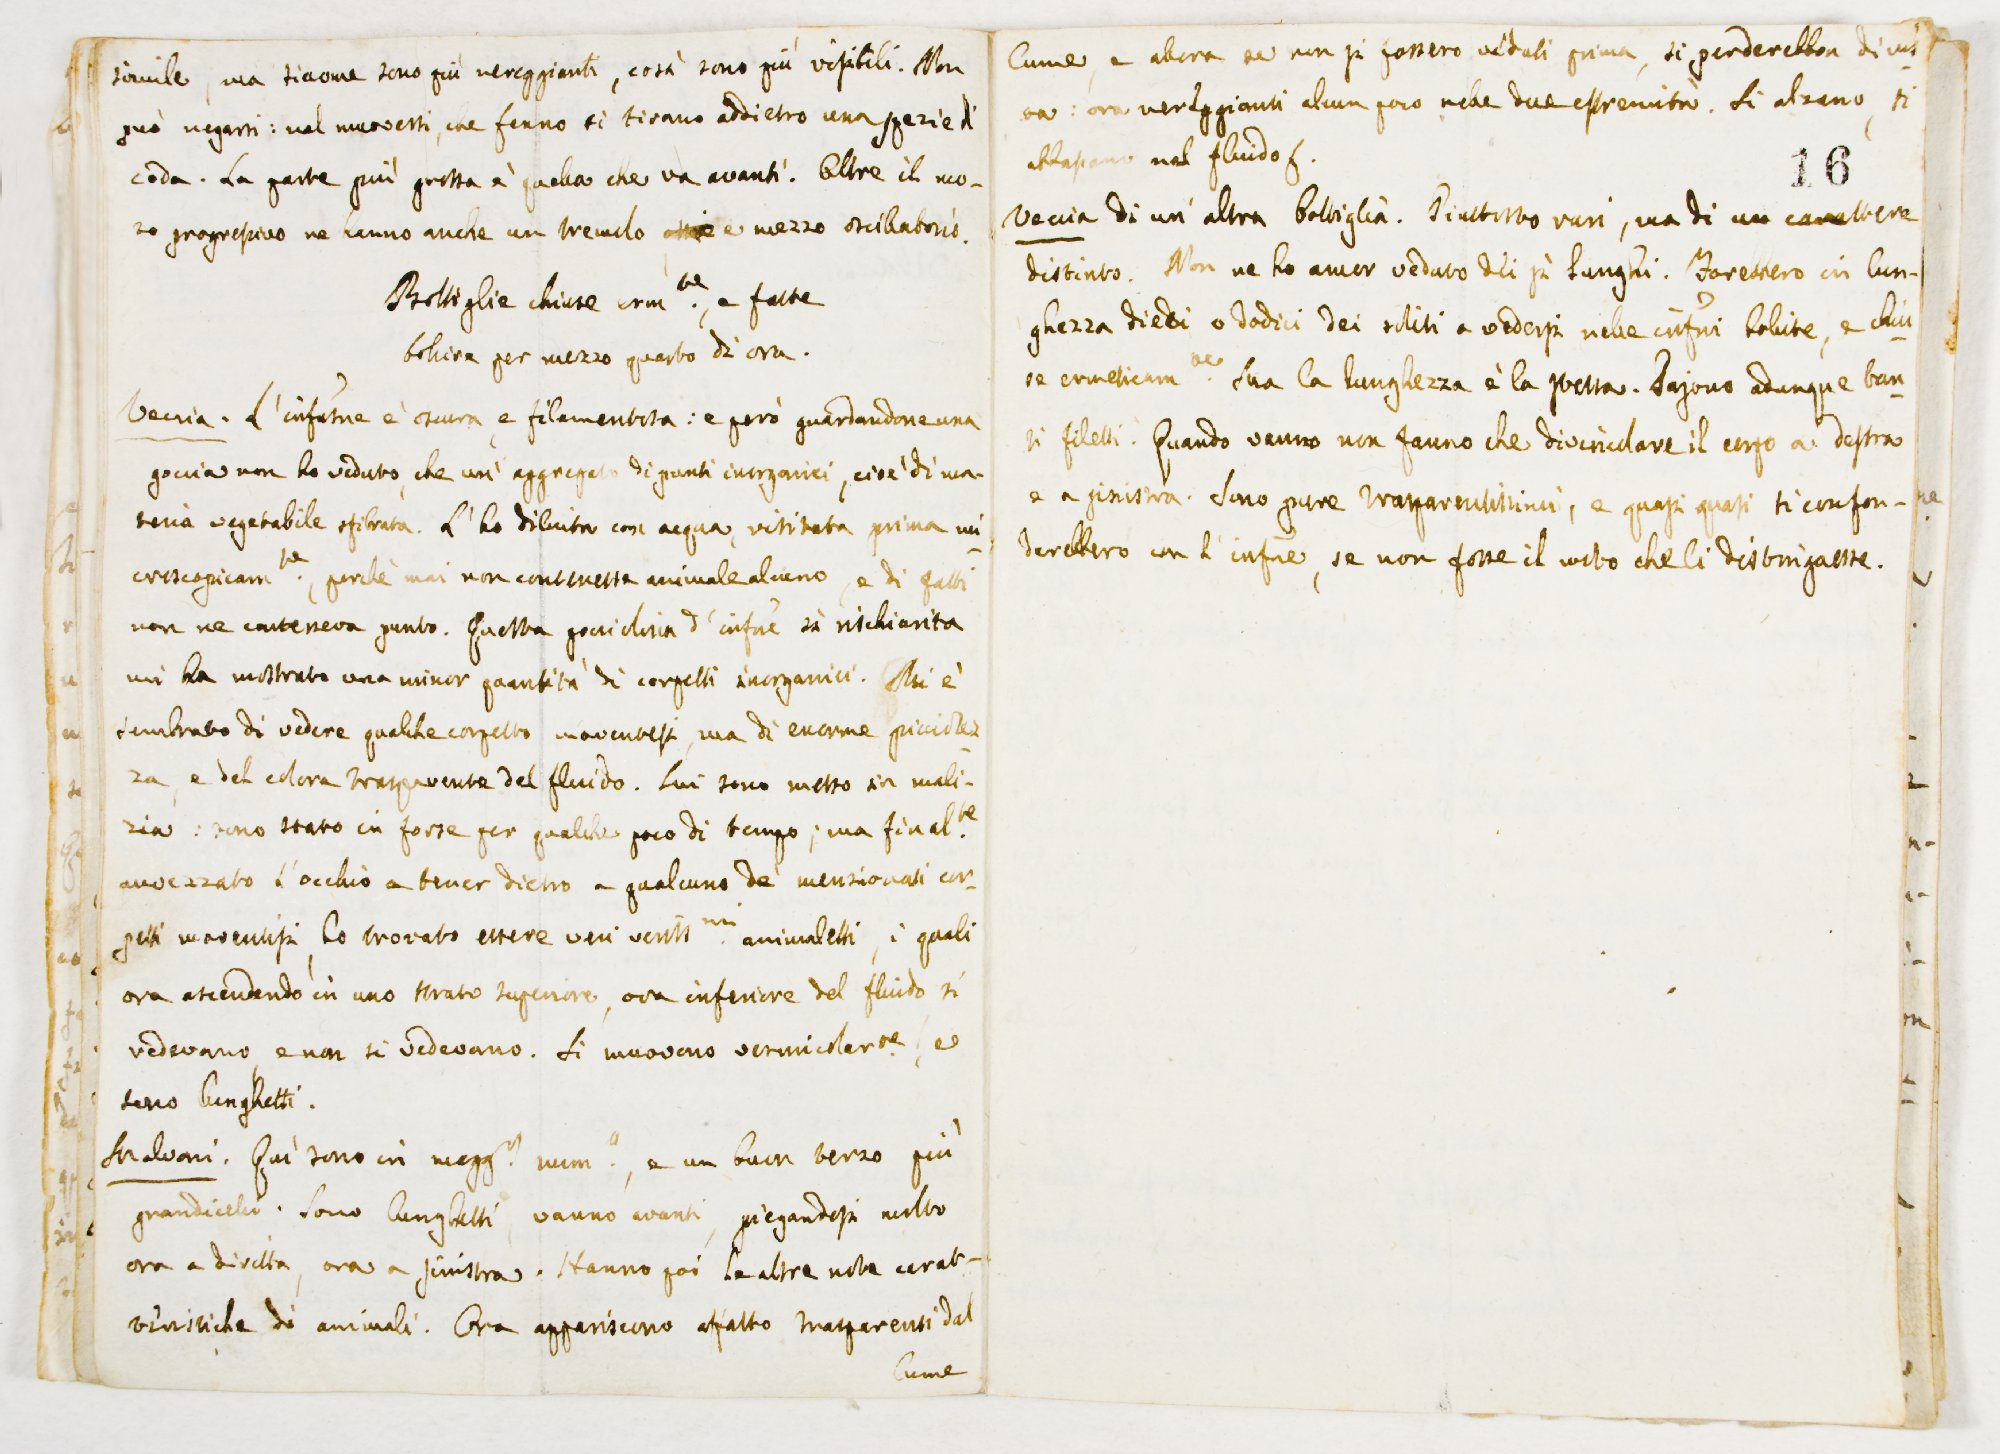 simile, ma siccome sono più nereggianti, così sono più visibili. Non
può negarsi: nel muoversi, che fanno si tirano addietro una spezie di
coda. La parte più grossa è quella che va avanti. Oltre il mo-
to progressivo ne hanno anche un tremolo e mezzo oscillatorio.
Bottiglie chiuse erm.te, e fatte
bollire per mezzo quarto di ora.
Veccia. L'infusne è oscura, e filamentosa: e però guardandone una
goccia non ho veduto, che un' aggregato di punti inorganici, cioè di ma-
teria vegetabile sfibrata. L'ho diluita con acqua, visitata prima mi-
croscopicam.te, perchè mai non contenesse animale alcuno, e di fatti
non ne conteneva punto. Questa gocciolina d'infne sì rischiarita
mi ha mostrato una minor quantità di corpetti inorganici. Mi è
sembrato di vedere qualche corpetto moventesi, ma di enorme picciolez-
za, e del colore trasparente del fluido. Qui sono messo in mali-
zia: sono stato in forse per qualche poco di tempo; ma final.te
avvezzato l'occhio a tener dietro a qualcuno de' menzionati cor-
petti moventisi, ho trovato essere veri veriss.mi animaletti, i quali
ora ascendendo in uno strato superiore, ora inferiore del fluido si
vedevano, e non si vedevano. Si muovono vermicolar.te, e
sono lunghetti.
Scalvari. Qui sono in magg.r num.o, e un buon terzo più
grandicelli. Sono lunghetti, vanno avanti, piegandosi molto
ora a diritta, ora a sinistra. Hanno poi le altre note carat-
teristiche di animali. Ora appariscono affatto trasparenti dal
lume
lume, e allora se non si fossero veduti prima, si perderebbon di vis-
ta: ora nereggianti alcun poco nelle due estremità. Si alzano, si
abbassano nel fluido
16
Veccia di un' altra bottiglia. Piuttosto rari, ma di un carattere
distinto. Non ne ho ancor veduto dei sì lunghi. Farebbero in lun-
ghezza dieci o dodici dei soliti a vedersi nelle infusni bollite, e chiu-
se ermeticam.te. Sua la lunghezza è la stessa. Pajono adunque tan-
ti filetti. Quando vanno non fanno che divincolare il corpo a destra
e a sinistra. Sono pure trasparentissimi, e quasi quasi si confon-
derebbero con l'infne, se non fosse il moto che li distinguesse.